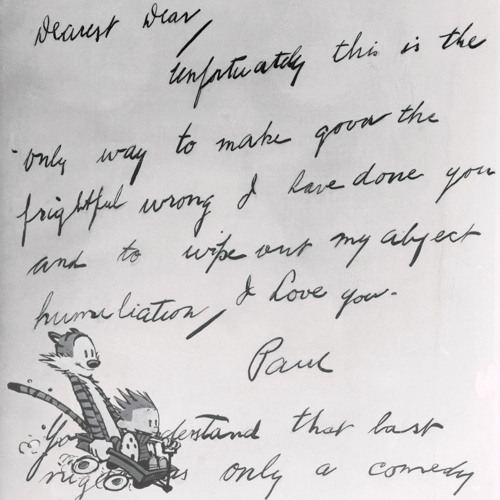 Dearest Dear,
Unfortuately this is the
only way to make good the
frightful wrong I have done you
and to wipe out my abject
humiliation, I Love you.
Paul
You derstand that last
nig s only a comedy